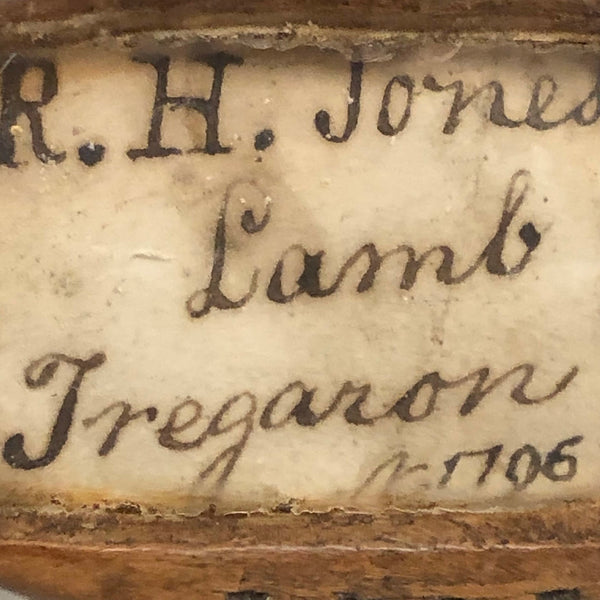 R. H. Jones
Lamb
Tregaron
1706